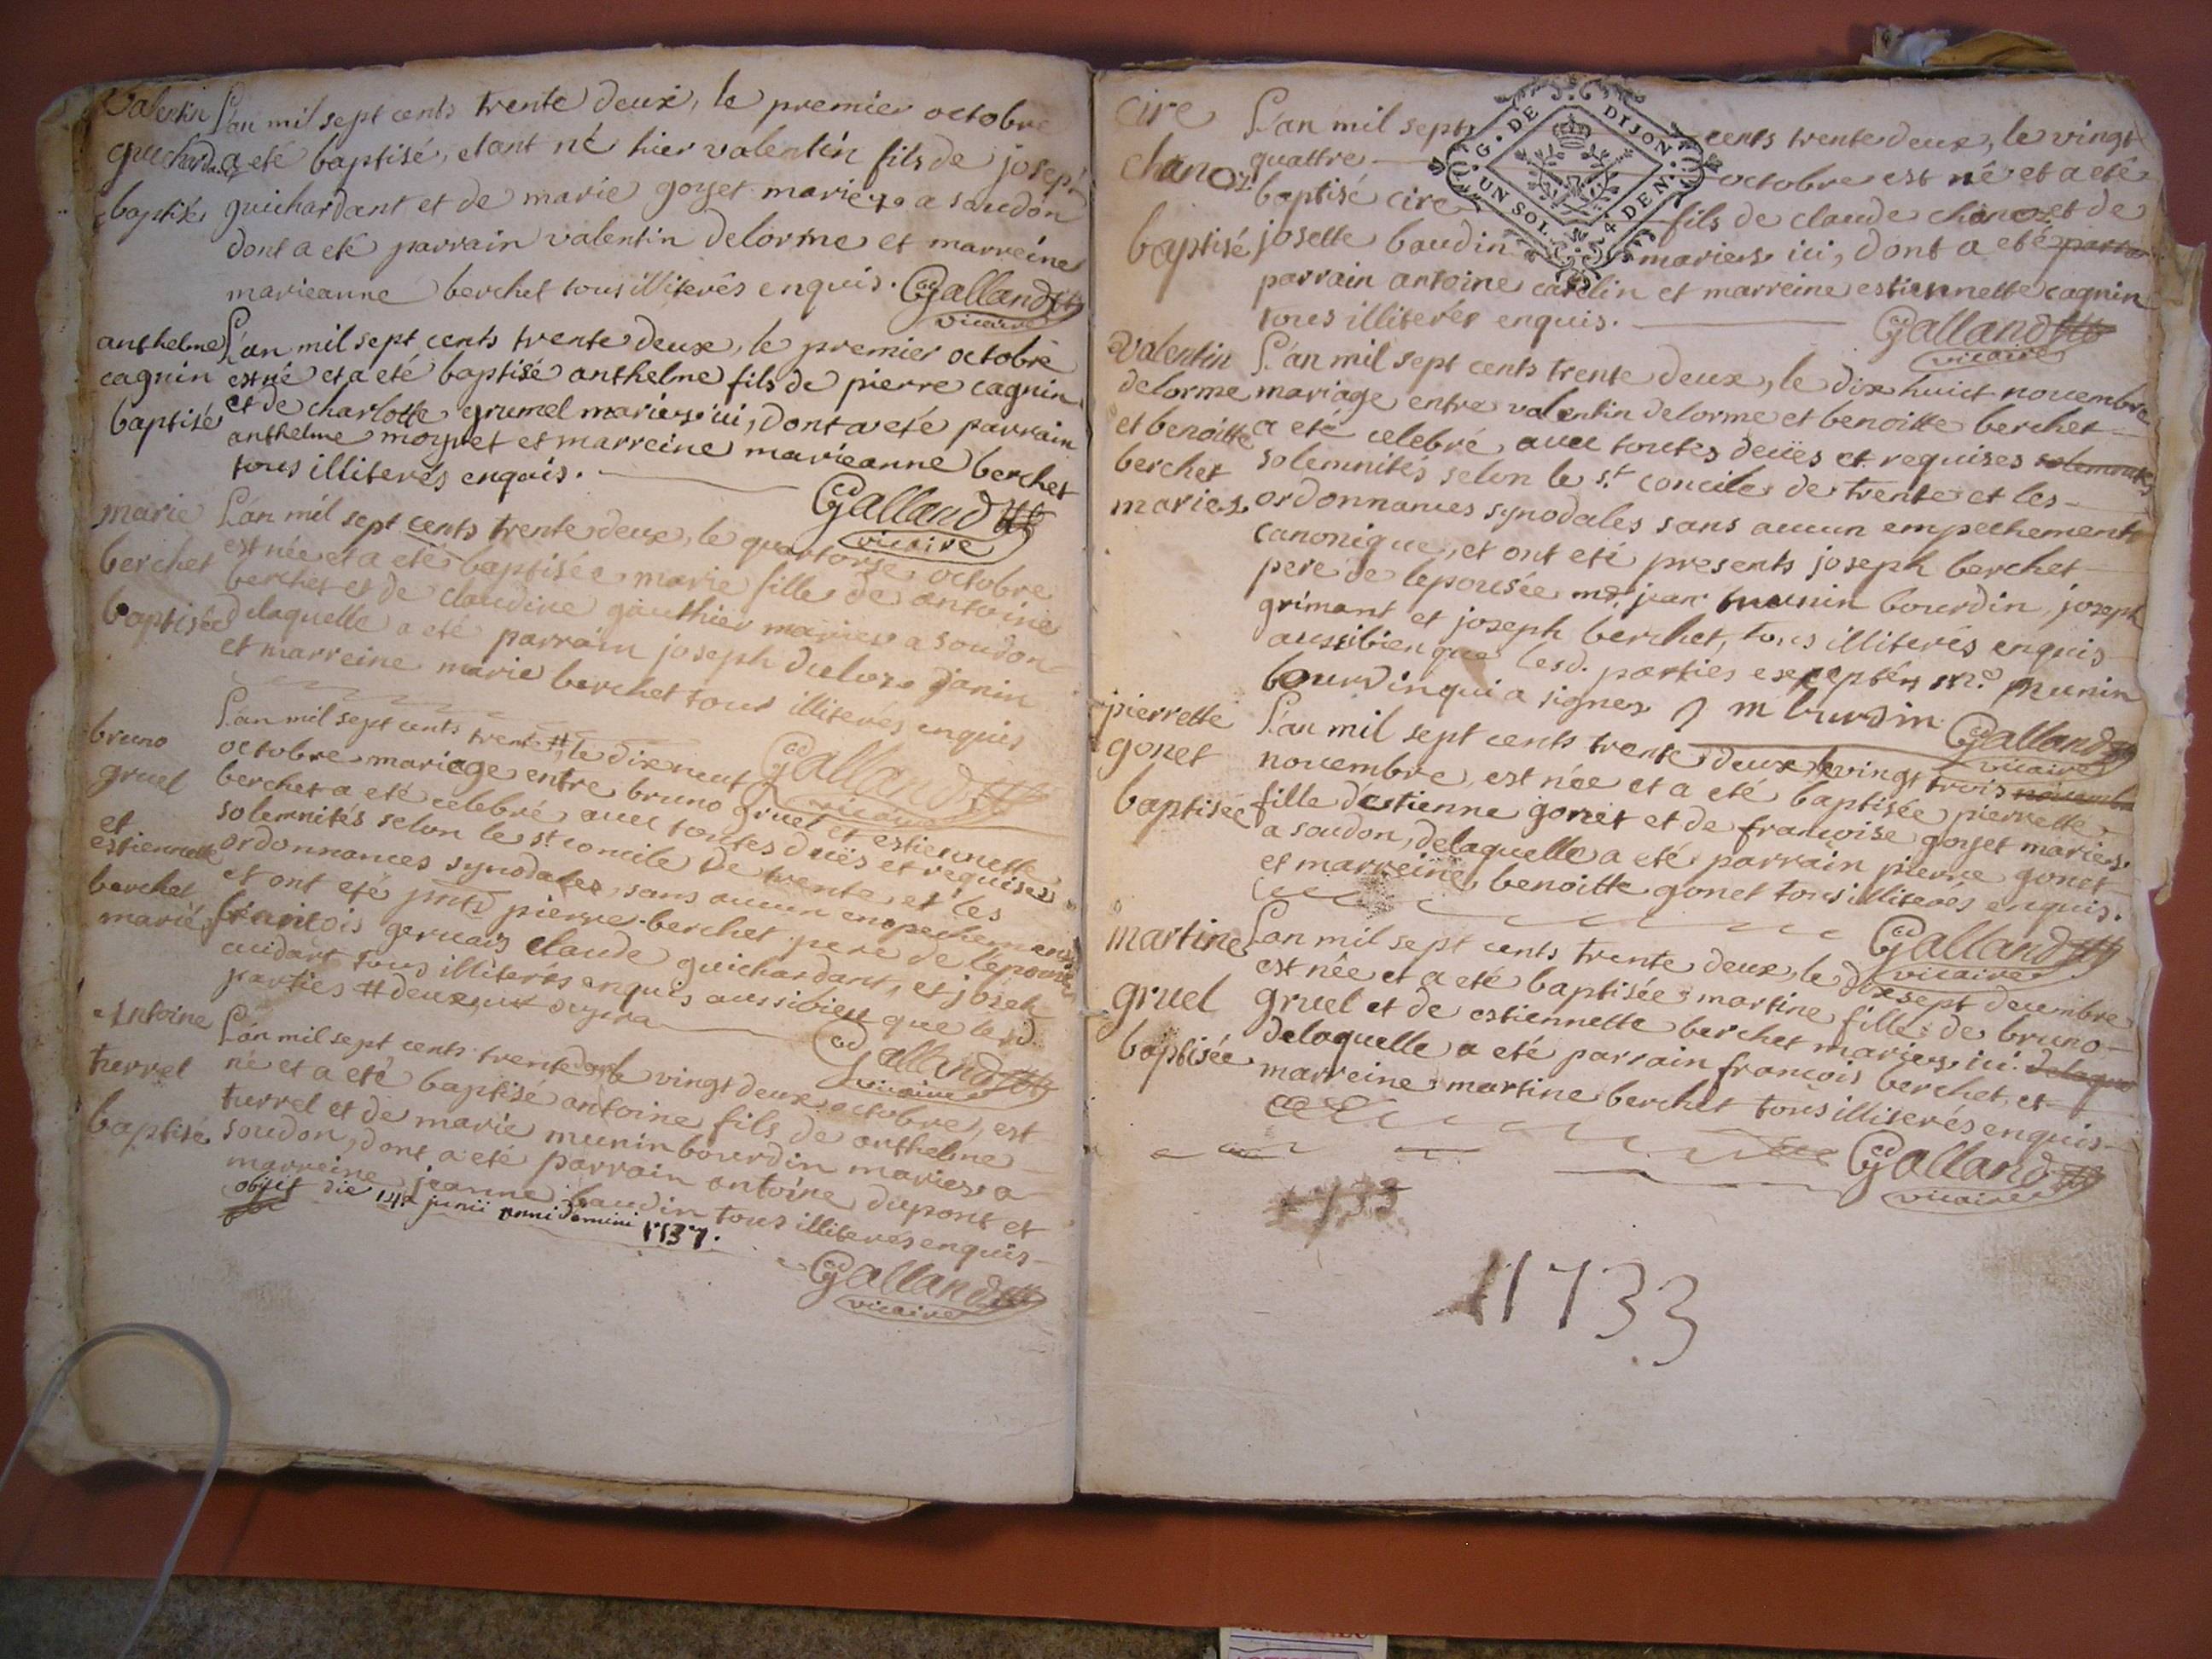 Valentin
guichardant
baptisé
L'an mil sept cents trente deux, le premier octobre
a eté baptisé, etant né hier valentin fils de joseph
guichardant et de marie goyset mariez a soudon
dont a eté parrain valentin delorme et marreine
marieanne berchet tous illiterés enquis. Galland
vicaire
anthelme
cagnin
baptisé
L'an mil sept cents trente deux, le premier octobre
est né et a eté baptisé anthelme fils de pierre cagnin
et de charlotte grumel mariez ici, dont a eté parrain
anthelme moyret et marreine marieanne berchet
tous illiterés enquis.
Galland
vicaire
marie
berchet
baptisée
L'an mil sept cents trente deux, le quatorse octobre
est née et a eté baptisée marie fille de antoine
berchet et de claudine gauthier mariez a soudon
delaquelle a eté parrain joseph janin
et marreine marie berchet tous illiterés enquis
Galland
vicaire
bruno
gruel
et
estiennette
berchet
mariés
L'an mil sept cents trente # le dix neuf
octobre mariage entre bruno gruel et estiennette
berchet a eté celebré, avec toutes duës et requises
solemnités selon le st concile de trente et les
ordonnances synodales, sans aucun empechement
et ont eté pnts pierre berchet pere de lepousée
francois gervais claude guichardant, et joseph
cuidart tous illiterés enquis aussibien que lesd.
parties # deux
Galland
vicaire
Antoine
turrel
baptisé
L'an mil sept cents trente deux le vingt deux octobre, est
né et a eté baptisé antoine fils de anthelme
turrel et de marie munin bourdin mariez a
soudon, dont a eté parrain antoine dupont et
marreine jeanne baudin tous illiterés enquis
obiit die 14a junii anni domini 1737.
Galland
vicaire
cire
chanoz
baptisé
G. DE DIJON.
UN SOL. 4 DEN.
L'an mil sept cents trente deux, le vingt
quattre octobre est né et a eté
baptisé cire fils de claude chanoz et de
josette baudin mariez ici, dont a eté parra
parrain antoine carelin et marreine estiennette cagnin
tous illiterés enquis.
Galland
vicaire
valentin
delorme
et benoitte
berchet
mariez
L'an mil sept cents trente deux, le dix huict novembre
mariage entre valentin delorme et benoitte berchet
a eté celebré, avec toutes deües et requises solemnites
solemnités selon le st. concile de trente et les
ordonnances synodales sans aucun empechement
canonique, et ont eté presents joseph berchet
pere de lepousée me. jean munin bourdin, joseph
grimant et joseph berchet, tous illiterés enquis
aussibien que lesd. parties exceptéz me. munin
bourdin qui a signez J m burdin Galland
vicaire
pierrette
gonet
baptisée
L'an mil sept cents trente deux, le vingt trois novembre
novembre, est née et a eté baptisée pierrette
fille d'estienne gonet et de francoise goyset mariez
a soudon, delaquelle a eté parrain pierre gonet
et marreine, benoitte gonet tous illiterés enquis.
Galland
vicaire
martine
gruel
baptisée
L'an mil sept cents trente deux, le dix sept decembre
est née et a eté baptisée martine fille de bruno
gruel et de estiennette berchet mariez ici delaque
delaquelle a eté parrain francois berchet, et
marreine martine berchet tous illiterés enquis
Galland
vicaire
1733
1733